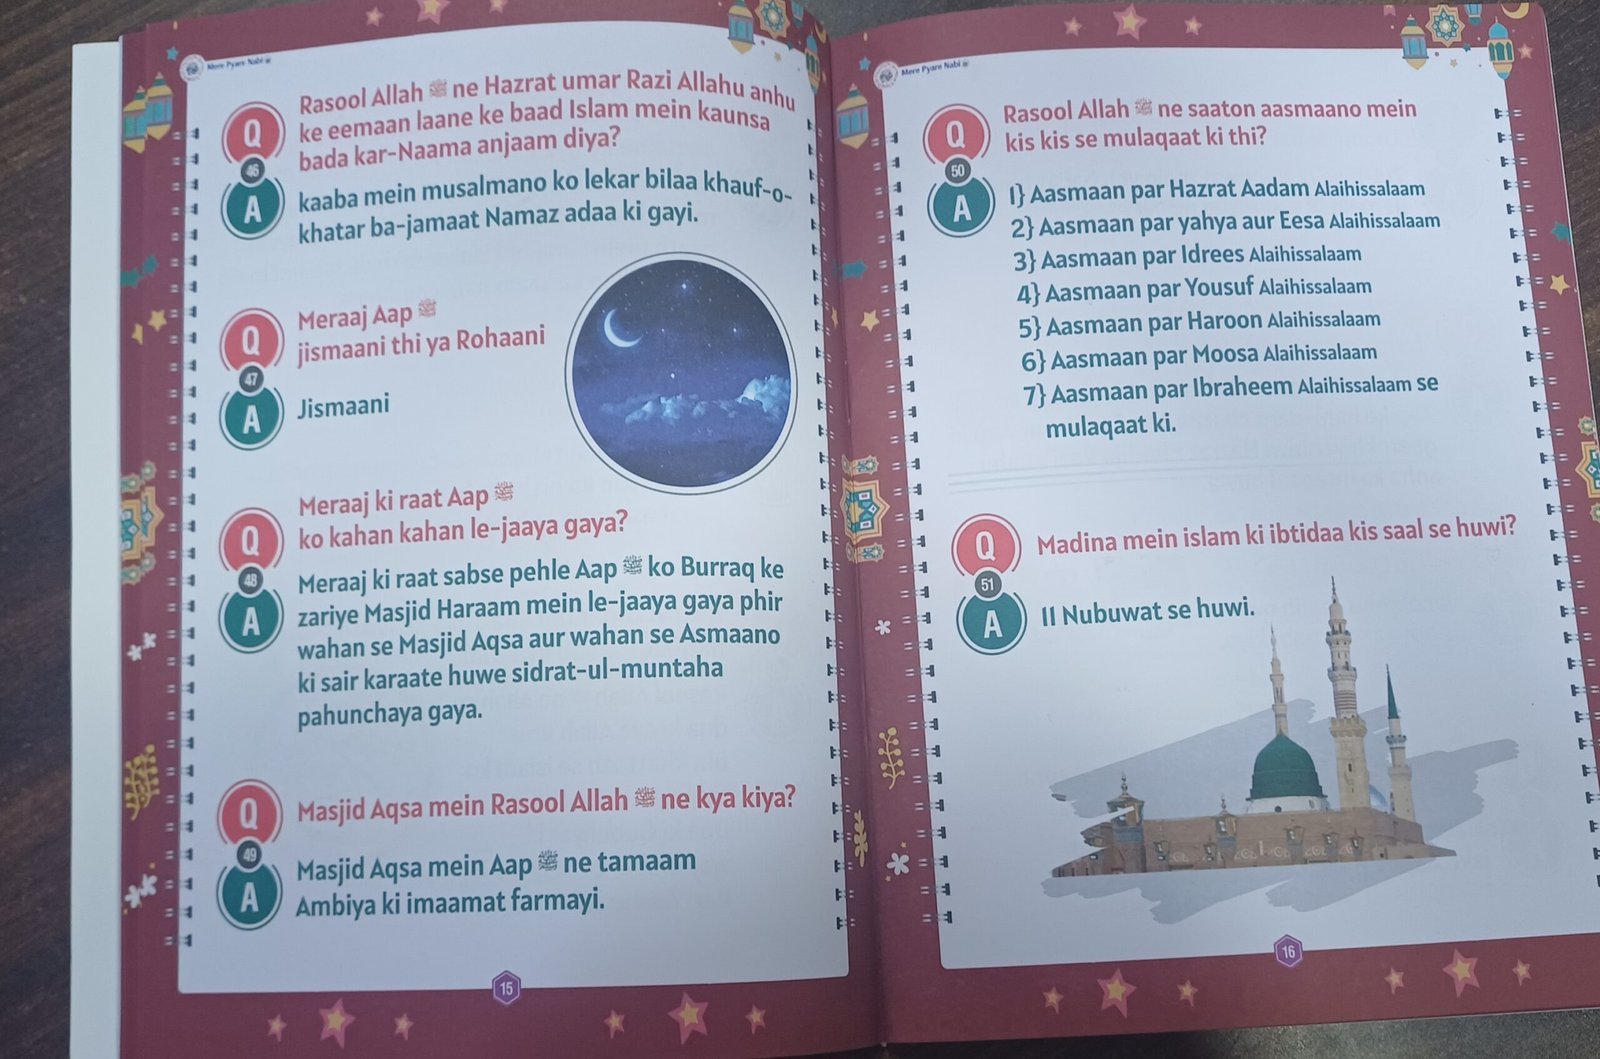 Mere Pyare Nabi ﷺ
Q
46
A
Rasool Allah ﷺ ne Hazrat umar Razi Allahu anhu
ke eemaan laane ke baad Islam mein kaunsa
bada kar-Naama anjaam diya?
kaaba mein musalmano ko lekar bilaa khauf-o-
khatar ba-jamaat Namaz adaa ki gayi.
Q
47
A
Meraaj Aap ﷺ
jismaani thi ya Rohaani
Jismaani
Q
48
A
Meraaj ki raat Aap ﷺ
ko kahan kahan le-jaaya gaya?
Meraaj ki raat sabse pehle Aap ﷺ ko Burraq ke
zariye Masjid Haraam mein le-jaaya gaya phir
wahan se Masjid Aqsa aur wahan se Asmaano
ki sair karaate huwe sidrat-ul-muntaha
pahunchaya gaya.
Q
49
A
Masjid Aqsa mein Rasool Allah ﷺ ne kya kiya?
Masjid Aqsa mein Aap ﷺ ne tamaam
Ambiya ki imaamat farmayi.
15
Mere Pyare Nabi ﷺ
Q
50
A
Rasool Allah ﷺ ne saaton aasmaano mein
kis kis se mulaqaat ki thi?
1} Aasmaan par Hazrat Aadam Alaihissalaam
2} Aasmaan par yahya aur Eesa Alaihissalaam
3} Aasmaan par Idrees Alaihissalaam
4} Aasmaan par Yousuf Alaihissalaam
5} Aasmaan par Haroon Alaihissalaam
6} Aasmaan par Moosa Alaihissalaam
7} Aasmaan par Ibraheem Alaihissalaam se
mulaqaat ki.
Q
51
A
Madina mein islam ki ibtidaa kis saal se huwi?
11 Nubuwat se huwi.
16